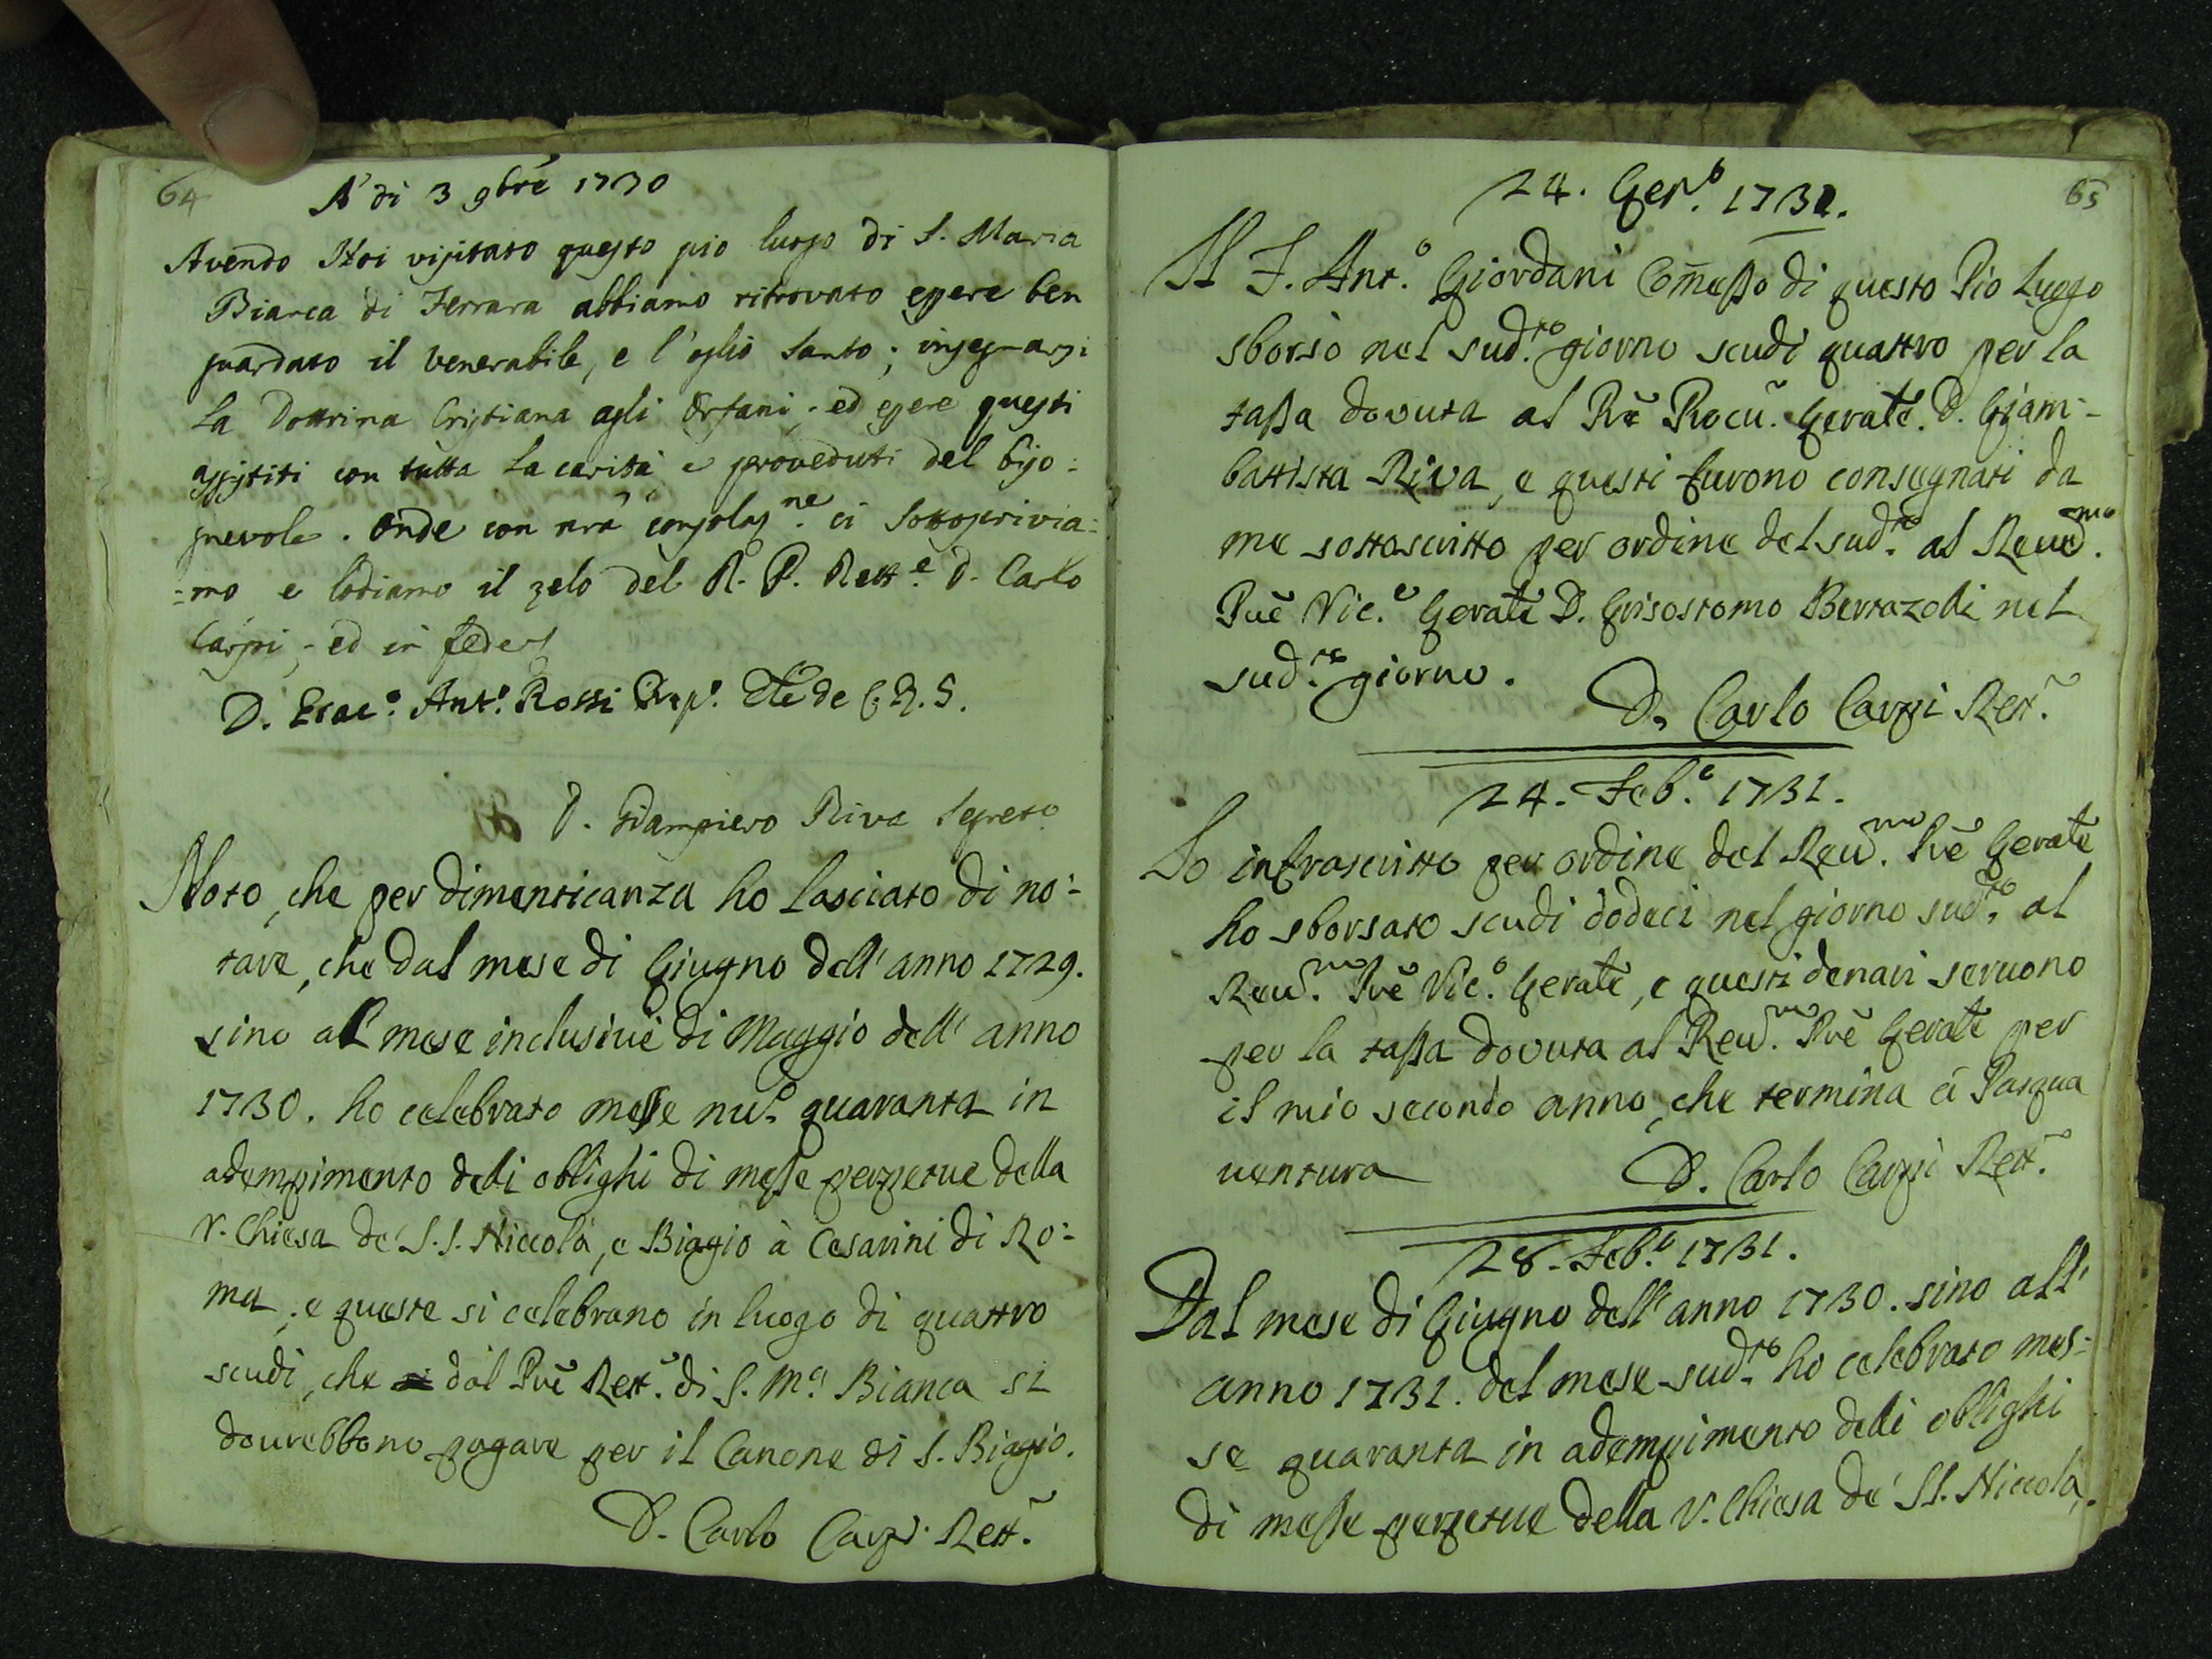 64
A dì 3 9bre 1730
Avendo Noi visitato questo pio luogo di S. Maria
Bianca di Ferrara abbiamo ritrovato essere ben
guardato il Venerabile, e l'oglio Santo; insegnarsi
la Dottrina Cristiana agli Orfani; ed essere questi
assistiti con tutta la carità e proveduti del biso=
gnevole. Onde con nrã consolaz.ne ci sottoscrivia=
=mo e lodiamo il zelo del R. P. Rett.e D. Carlo
Carpi; ed in fede
D. Erac.o Ant.o Rossi Prep.o Gle de C. R. S.
D. Giampiero Riva Segreto
Noto, che per dimenticanza ho lasciato di no=
tare, che dal mese di Giugno dell'anno 1729.
sino al mese inclusive di Maggio dell'anno
1730. ho celebrato messe nu.o quaranta in
adempimento delli oblighi di messe perpetue della
V. Chiesa de' S.S. Niccolò, e Biagio à Cesarini di Ro=
ma; e queste si celebrano in luogo di quattro
scudi, che dal Prẽ Rett.~ di S. M.a Bianca si
dourebbono pagare per il Canone di S. Biagio.
D. Carlo Carpi Rett.~
65
24. Gen.o 1731.
Il F. Ant.o Giordani Com̃esso di questo Pio Luogo
sborsò nel sud.to giorno scudi quattro per la
tassa dovuta al Rẽ Procũ. Gen̄ale. D. Giam=
battista Riva, e questi furono consegnati da
me sottoscritto per ordine del sud.to al Reud.mo
Prẽ Vic.o Gen̄ale D. Grisostomo Bertazolli nel
sud.to giorno.
D. Carlo Carpi Rett.~
24. Feb.o 1731.
Io infrascritto per ordine del Reu.mo Prẽ Gen̄ale
ho sborsato scudi dodeci nel giorno sud.to al
Reu.mo Prẽ Vic.o Gen̄ale, e questi denari seruono
per la tassa dovuta al Reu.mo Prẽ Gen̄ale per
il mio secondo anno, che termina à Pasqua
uentura
D. Carlo Carpi Rett.~
28. Feb.o 1731.
Dal mese di Giugno dell'anno 1730. sino all'
anno 1731. del mese sud.to ho celebrato mes=
se quaranta in adempimento delli oblighi
di messe perpetue della V. Chiesa de' SS. Niccolò,